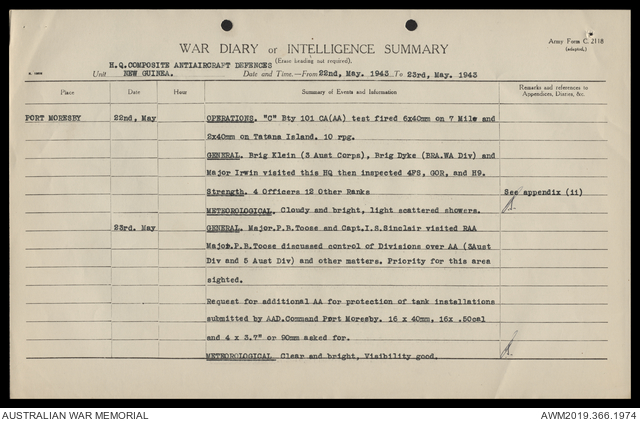 Army Form C. 2118
(adapted.)
WAR DIARY or INTELLIGENCE SUMMARY
(Erase heading not required).
H.Q.COMPOSITE ANTIAIRCRAFT DEFENCES
Unit NEW GUINEA. Date and Time.—From 22nd, May. 1943 To 23rd, May. 1943
Place Date Hour Summary of Events and Information Remarks and references to Appendices, Diaries, &c.
PORT MORESBY 22nd, May OPERATIONS. "C" Bty 101 CA(AA) test fired 6x40mm on 7 Mile and
2x40mm on Tatana Island. 10 rpg.
GENERAL. Brig Klein (3 Aust Corps), Brig Dyke (BRA.WA Div) and
Major Irwin visited this HQ then inspected 4PS, GOR, and H9.
Strength. 4 Officers 12 Other Ranks See appendix (ii)
METEOROLOGICAL. Cloudy and bright, light scattered showers.
23rd. May GENERAL. Major.P.B.Toose and Capt.I.S.Sinclair visited RAA
Major.P.B.Toose discussed control of Divisions over AA (3Aust
Div and 5 Aust Div) and other matters. Priority for this area
sighted.
Request for additional AA for protection of tank installations
submitted by AAD.Command Port Moresby. 16 x 40mm, 16x .50cal
and 4 x 3.7" or 90mm asked for.
METEOROLOGICAL Clear and bright, Visibility good.
AUSTRALIAN WAR MEMORIAL AWM2019.366.1974